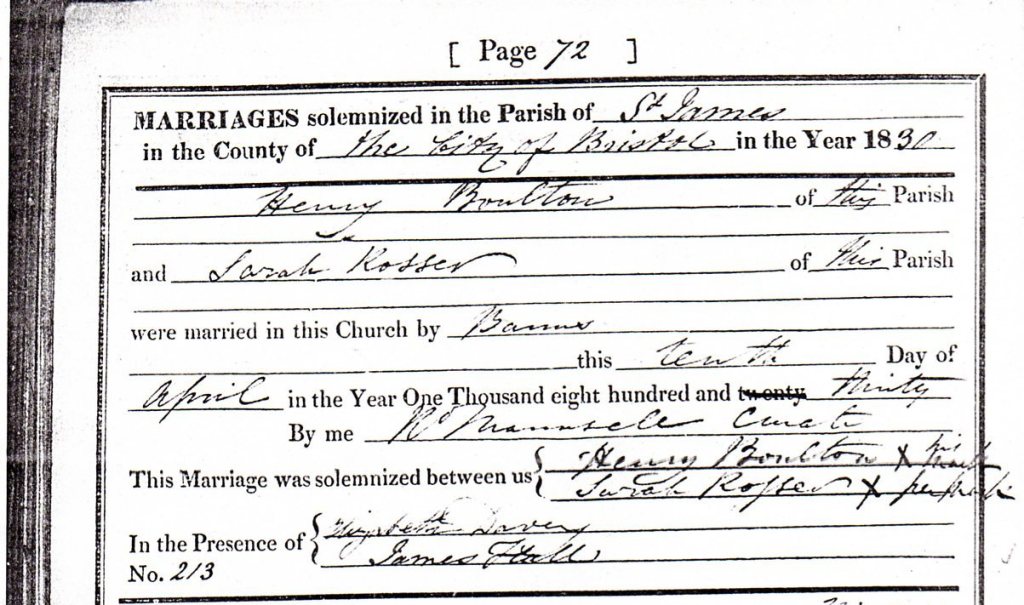 [ Page 72 ]
MARRIAGES solemnized in the Parish of St James
in the County of the City of Bristol in the Year 1830
Henry Boulton of this Parish
and Sarah Rosser of this Parish
were married in this Church by Banns
this tenth Day of
April in the Year One Thousand eight hundred and twenty thirty
By me Rd Maunsell Curate
This Marriage was solemnized between us { Henry Boulton X his mark
Sarah Rosser X her mark
In the Presence of { Elizabeth Davey
James Hall
No. 213